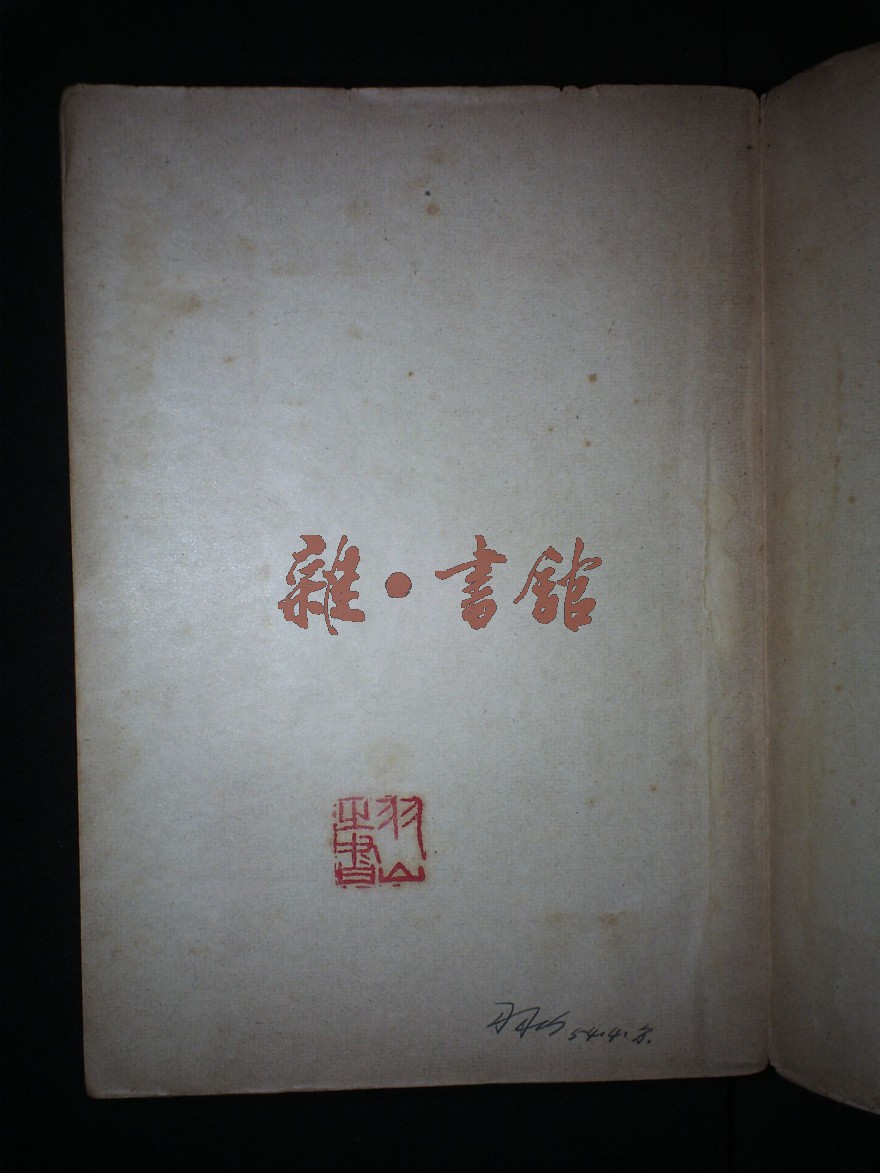 雜·書館
羽山之書
羽山 54.4.